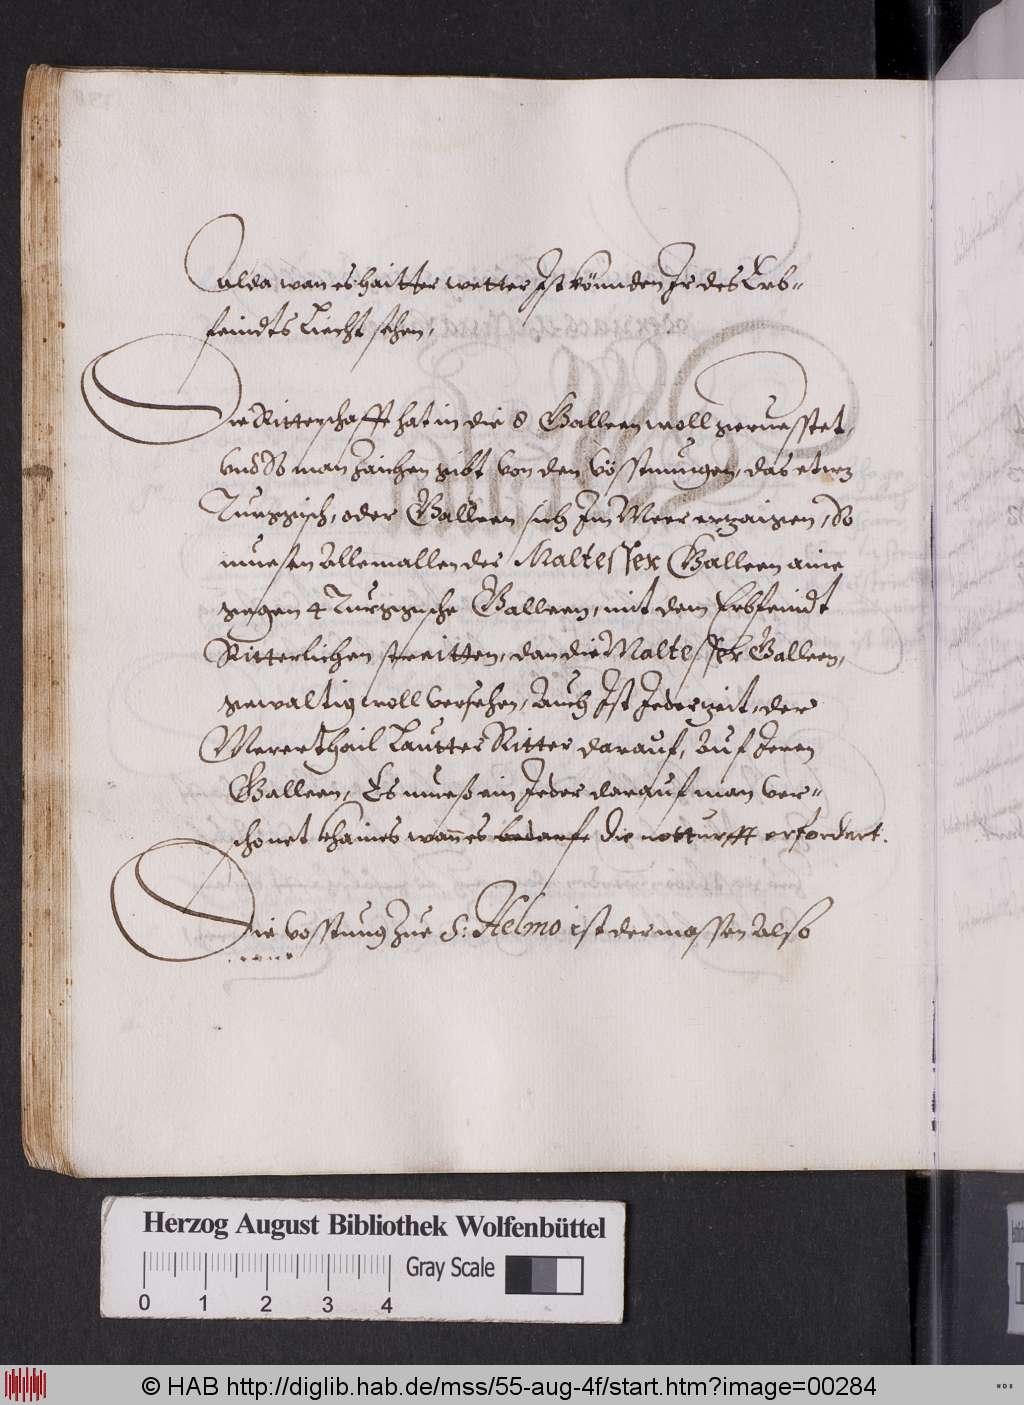 alda wan es haitter wetter Ist könnden Ir des Erb-
feindts Liecht sehen.
Die Ritterschafft hat in die 8 Galleen woll geruesstet,
vnd So man Zaichen gibt von den Vösstungen, das etwz
Turggisch, oder Galleen sich Im Meer erzaigen, So
muesen Allemallen der Maltesser Galleen aine
gegen 4 Turggische Galleen, mit dem Erbfeindt
Ritterlichen streitten, dan die Maltesser Galleen,
gewaltig woll versehen, Auch Ist Jederzeit, der
Merer thail Lautter Ritter darauf, Auf Jeren
Galleen, Es mueß ein Jeder darauf man ver-
schonet khaines wann es bedarfe die notturfft erfordert.
Die Vosstung Zue S: Helmo ist dermassen Also
Herzog August Bibliothek Wolfenbüttel
0 1 2 3 4 Gray Scale
© HAB http://diglib.hab.de/mss/55-aug-4f/start.htm?image=00284